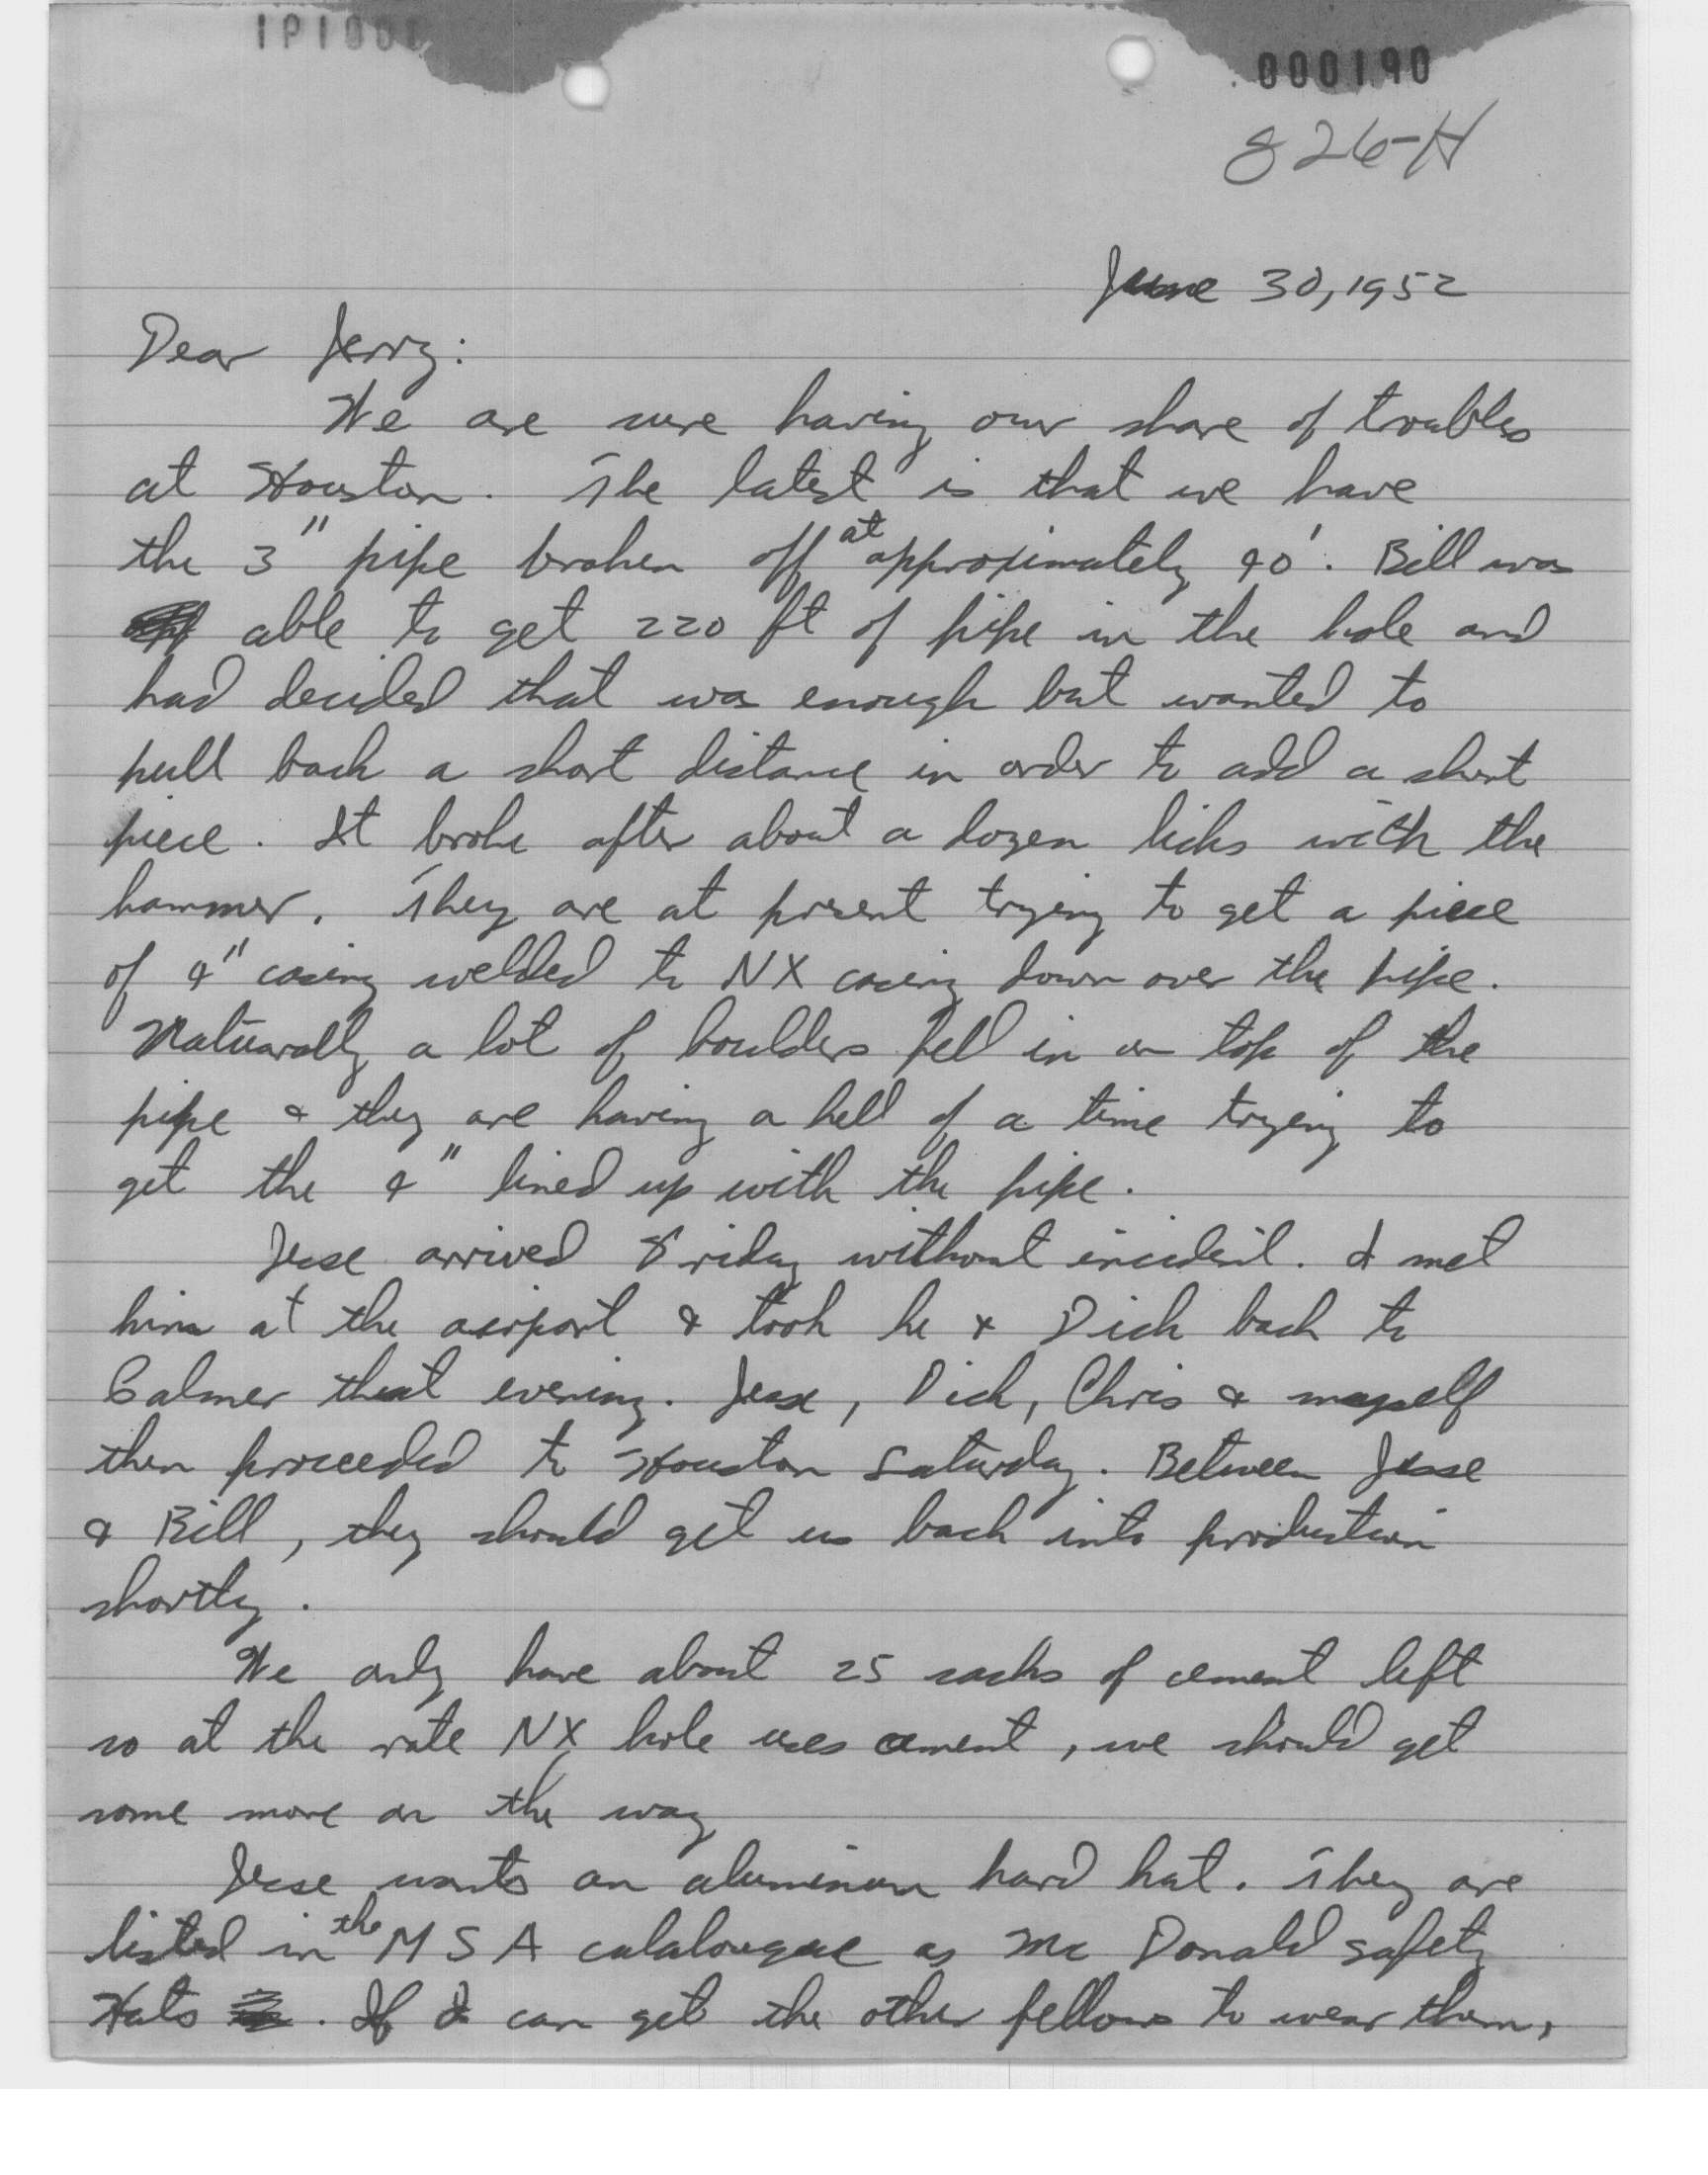 000190
826-H
June 30, 1952
Dear Jerry:
We are sure having our share of troubles
at Houston. The latest is that we have
the 3" pipe broken off at approximately 40'. Bill was
able to get 220 ft of pipe in the hole and
had decided that was enough but wanted to
pull back a short distance in order to add a short
piece. It broke after about a dozen licks with the
hammer. They are at present trying to get a piece
of 4" casing welded to NX casing down over the pipe.
Naturally a lot of boulders fell in on top of the
pipe & they are having a hell of a time trying to
get the 4" lined up with the pipe.
Jesse arrived Friday without incident. I met
him at the airport & took he & Dick back to
Calmer that evening. Jesse, Dick, Chris & myself
then proceeded to Houston Saturday. Between Jesse
& Bill, they should get us back into production
shortly.
We only have about 25 sacks of cement left
so at the rate NX hole uses cement, we should get
some more on the way
Jesse wants an aluminum hard hat. They are
listed in the MSA catalougue as Mc Donald safety
Hats. If I can get the other fellows to wear them,